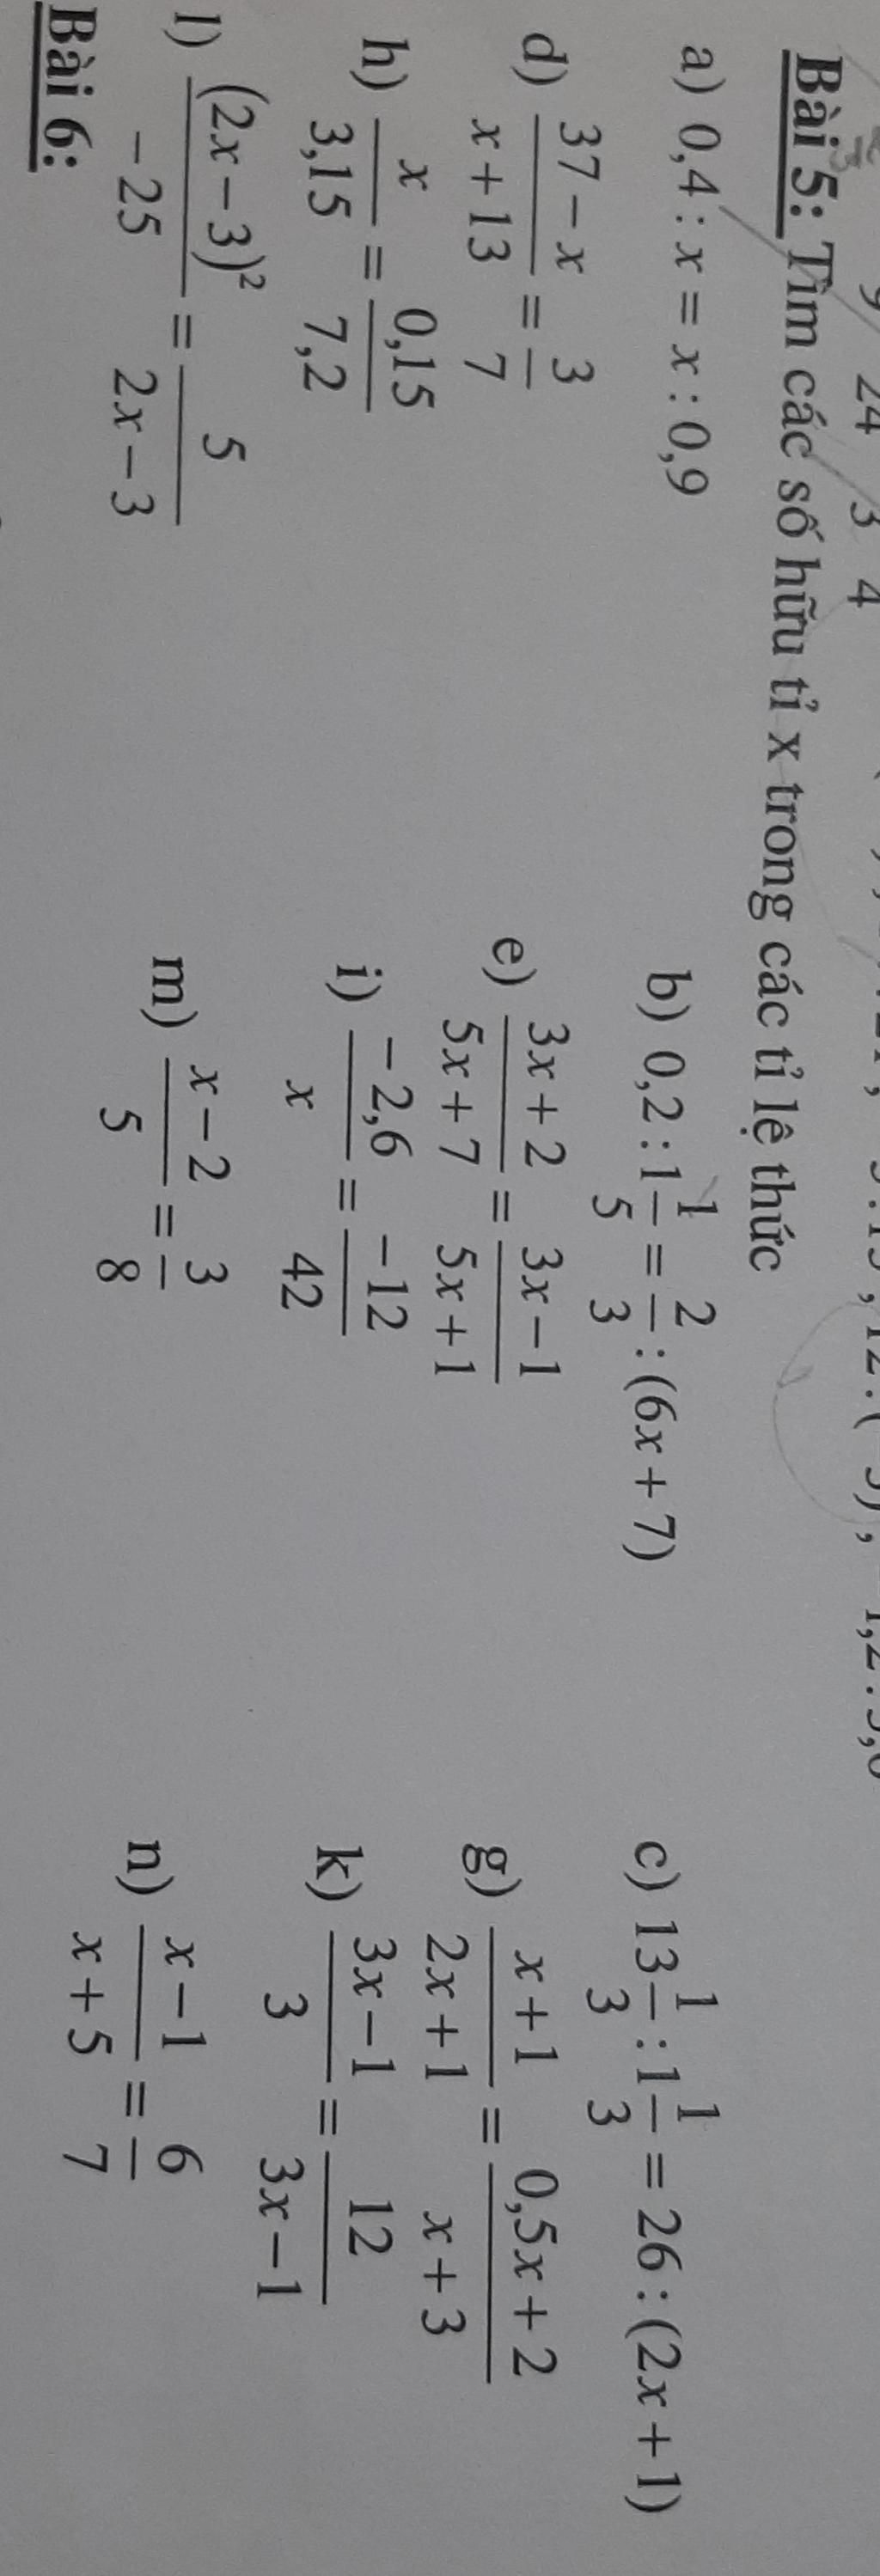 24 3 4
Bài 5: Tìm các số hữu tỉ x trong các tỉ lệ thức
a) 0,4 : x = x : 0,9 b) 0,2 : 1 1/5 = 2/3 : (6x + 7) c) 13 1/3 : 1 1/3 = 26 : (2x + 1)
d) (37 − x)/(x + 13) = 3/7 e) (3x + 2)/(5x + 7) = (3x − 1)/(5x + 1) g) (x + 1)/(2x + 1) = (0,5x + 2)/(x + 3)
h) x/3,15 = 0,15/7,2 i) −2,6/x = −12/42 k) (3x − 1)/3 = 12/(3x − 1)
l) (2x − 3)²/−25 = 5/(2x − 3) m) (x − 2)/5 = 3/8 n) (x − 1)/(x + 5) = 6/7
Bài 6: